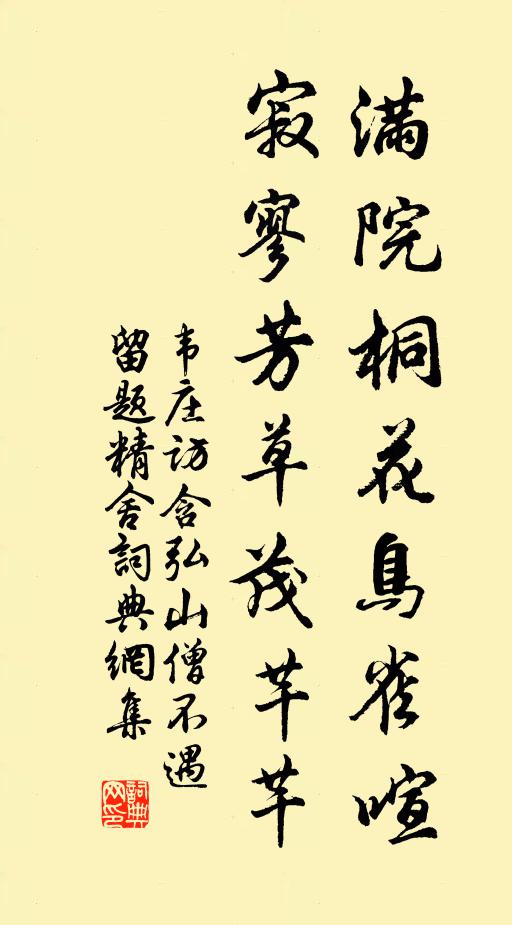 滿院桐花鳥雀喧
寂寥芳草茂芊芊
韦庄访含弘山僧不遇
留题精舍詞典網集
詞典网印